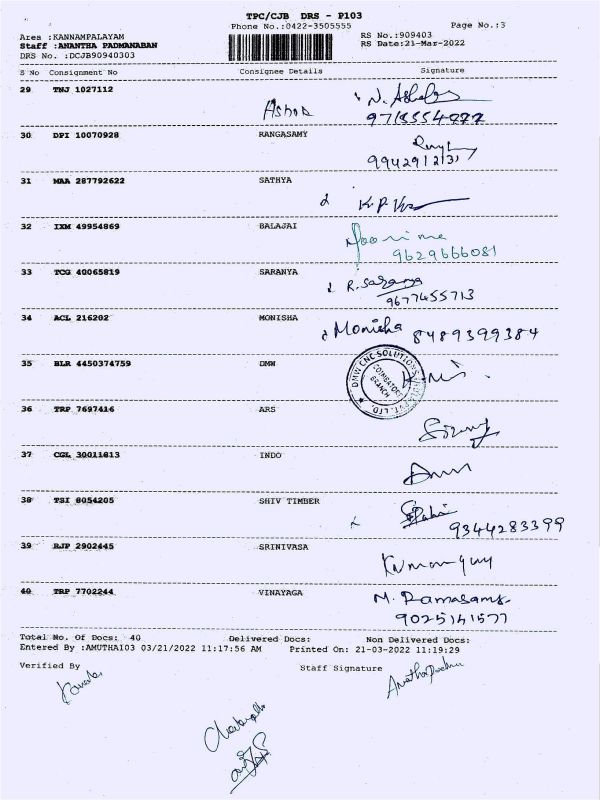 TPC/CJB DRS - P103
Phone No.:0422-3505555 Page No.:3
Area :KANNAMPALAYAM RS No.:909403
Staff :ANANTHA PADMANABAN RS Date:21-Mar-2022
DRS No. :DCJB90940303
S No Consignment No Consignee Details Signature
29 TNJ 1027112 Ashok N. Ashok
30 DPI 10070928 RANGASAMY
9942912131
31 MAA 287792622 SATHYA
K.P.
32 IXM 49954869 BALAJAI Poornima
9629666081
33 TCG 40065819 SARANYA R. Saranya
9677455713
34 ACL 216202 MONISHA Monisha 8489399384
35 BLR 4450374759 DMW
DMW CNC SOLUTIONS INDIA PVT. LTD.
COIMBATORE BRANCH
36 TRP 7697416 ARS
37 CGL 30011813 INDO
38 TSI 8054205 SHIV TIMBER
9344283399
39 RJP 2902445 SRINIVASA
40 TRP 7702244 VINAYAGA M. Ramasamy
9025141577
Total No. Of Docs: 40 Delivered Docs: Non Delivered Docs:
Entered By :AMUTHAI03 03/21/2022 11:17:56 AM Printed On: 21-03-2022 11:19:29
Verified By Staff Signature